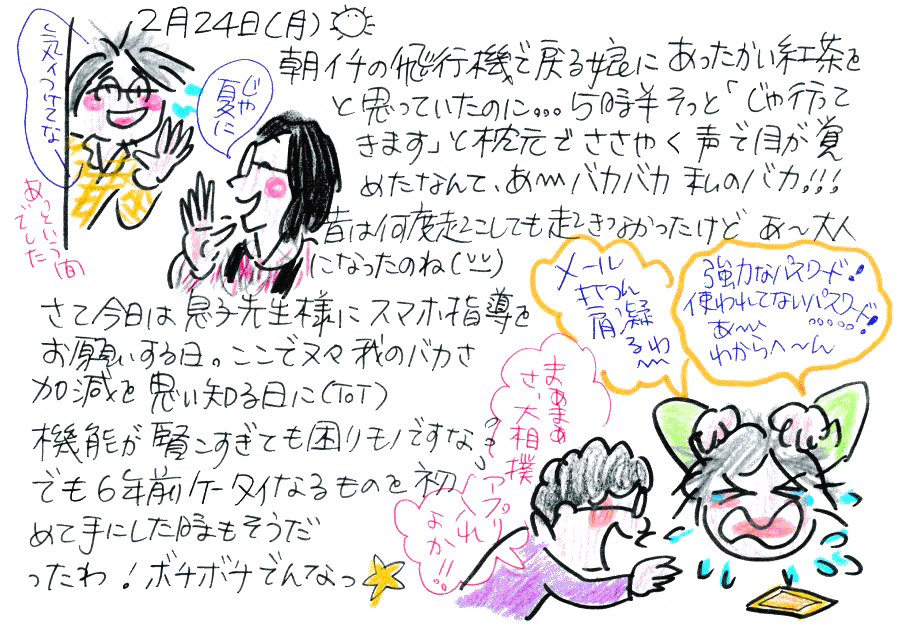 2月24日(月)
気ィつけてな
じゃ
夏に
あっという間
でした
朝イチの飛行機で戻る娘に あったかい紅茶を
と思っていたのに…5時半そっと「じゃ行って
きます」と枕元でささやく声で目が覚
めたなんて、あ〜バカバカ 私のバカ!!!
昔は何度起こしても起きなかったけど あ〜大人
になったのね
さて今日は息子先生様にスマホ指導を
お願いする日。ここで又々我のバカさ
加減を思い知る日に(ToT)
機能が賢こすぎても困りモノですな
でも6年前ケータイなるものを初
めて手にした時もそうだ
ったわ!ボチボチでんなっ
メール
打つん
肩凝
るわ
〜
強力なパスワード!
使われてないパスワード!
あ〜
わからへ〜ん
まぁまぁ
さ、大相撲
のアプリ
入れ
よか!!